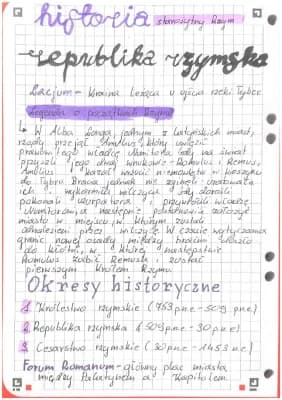 historia starożytny Rzym
republika rzymska
Lacjum - kraina leżąca u ujścia rzeki Tyber
Legenda o początkach Rzymu
↳ W Alba Longa, jednym z latyńskich miast,
rządy przejął Amulius, który uwięził
prawowitego władcę Numitora. Gdy na świat
przyszli jego wnukowie - Romulus i Remus,
Amulius kazał wrzucić niemowlęta w koszyku
do Tybru. Bracia jednak nie zginęli - uratowała
ich i wykarmiła wilczyca. Gdy dorośli
pokonali uzurpatora i przywrócili władzę
Numitorowi a następnie postanowili założyć
miasto w miejscu, w którym zostali
odnalezieni przez wilczycę. W czasie wytyczania
granic nowej osady między braćmi doszło
do kłótni, w której następstwie
Romulus zabił Remusa i został
pierwszym królem Rzymu.
Okresy historyczne
1. Królestwo rzymskie (753 p.n.e - 509 p.n.e)
2. Republika rzymska (509 p.n.e - 30 p.n.e)
3. Cesarstwo rzymskie (30 p.n.e - 1453 n.e.)
Forum Romanum - główny plac miasta
między Palatynem a Kapitolem.